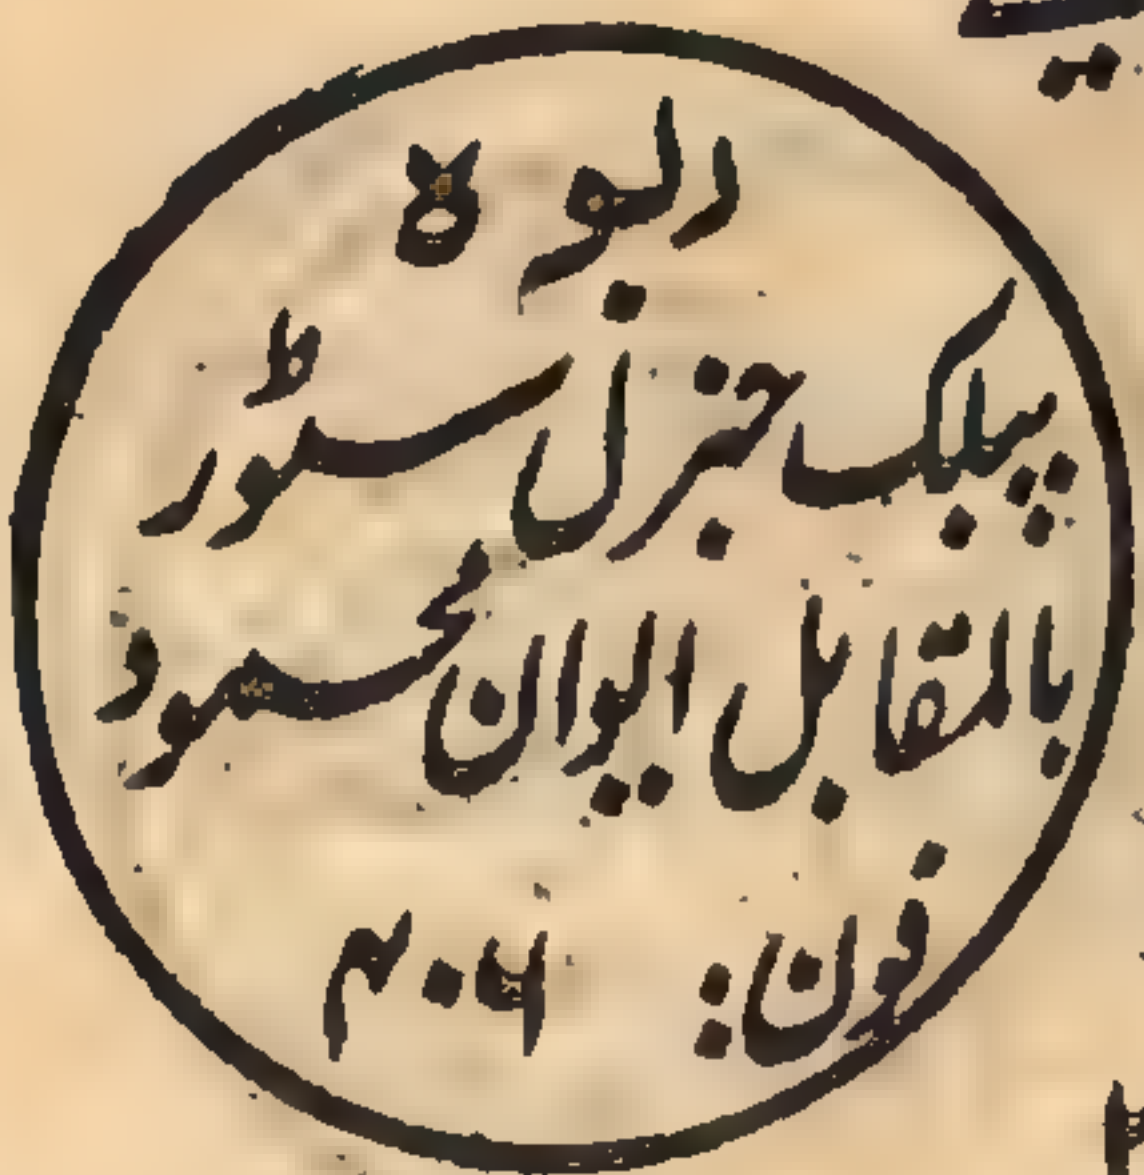 ربوہ
پبلک جنرل سٹور
بالمقابل ایوان محمود
فون: ۴۰۶